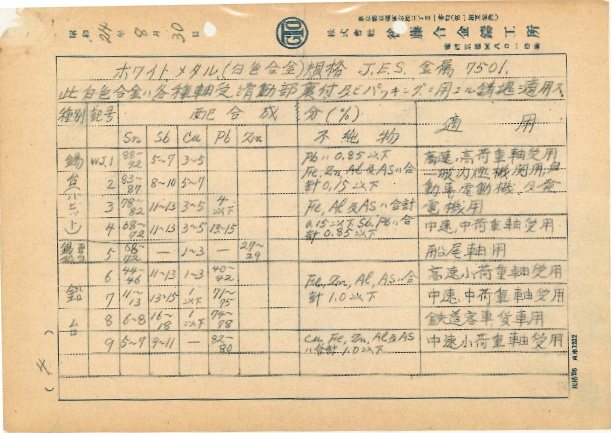 昭和 24年 8月 30日
GTO
株式会社 後藤合金鋳工所
ホワイトメタル(白色合金)規格 J.E.S. 金属 7501.
此白色合金ハ各種軸受、滑動部裏付及ビパッキングニ用エル鋳造適用ス
種別 記号 配合成分(%) 適用
Sn Sb Cu Pb Zn 不純物
錫台(バビット)
WJ.1 88-92 5-7 3-5 Pb ハ 0.85以下 高速、高荷重軸受用
2 83-87 8-10 5-7 Fe, Zn, Al, & AS ハ合計0.15以下 一般内燃機関用、自動車電動機、及発電機用
3 78-82 11-13 3-5 4以下 Fe, Al & AS ハ合計
4 68-72 11-13 3-5 13-15 0.15以下 Sb, Pb ハ合計 0.85以下 中速、中荷重軸受用
5 68-72 — 1-3 — 27-29 船尾軸用
鉛台
6 44-46 11-13 1-3 40-42 Fe, Zn, Al, & AS ハ合計 1.0以下 高速小荷重軸受用
7 11-13 13-15 1以下 71-75 中速、中荷重軸受用
8 6-8 16-18 1以下 74-78 鉄道客車、貨車用
9 5-7 9-11 — 82-80 Cu, Fe, Zn, Al & AS ハ合計 1.0以下 中速小荷重軸受用